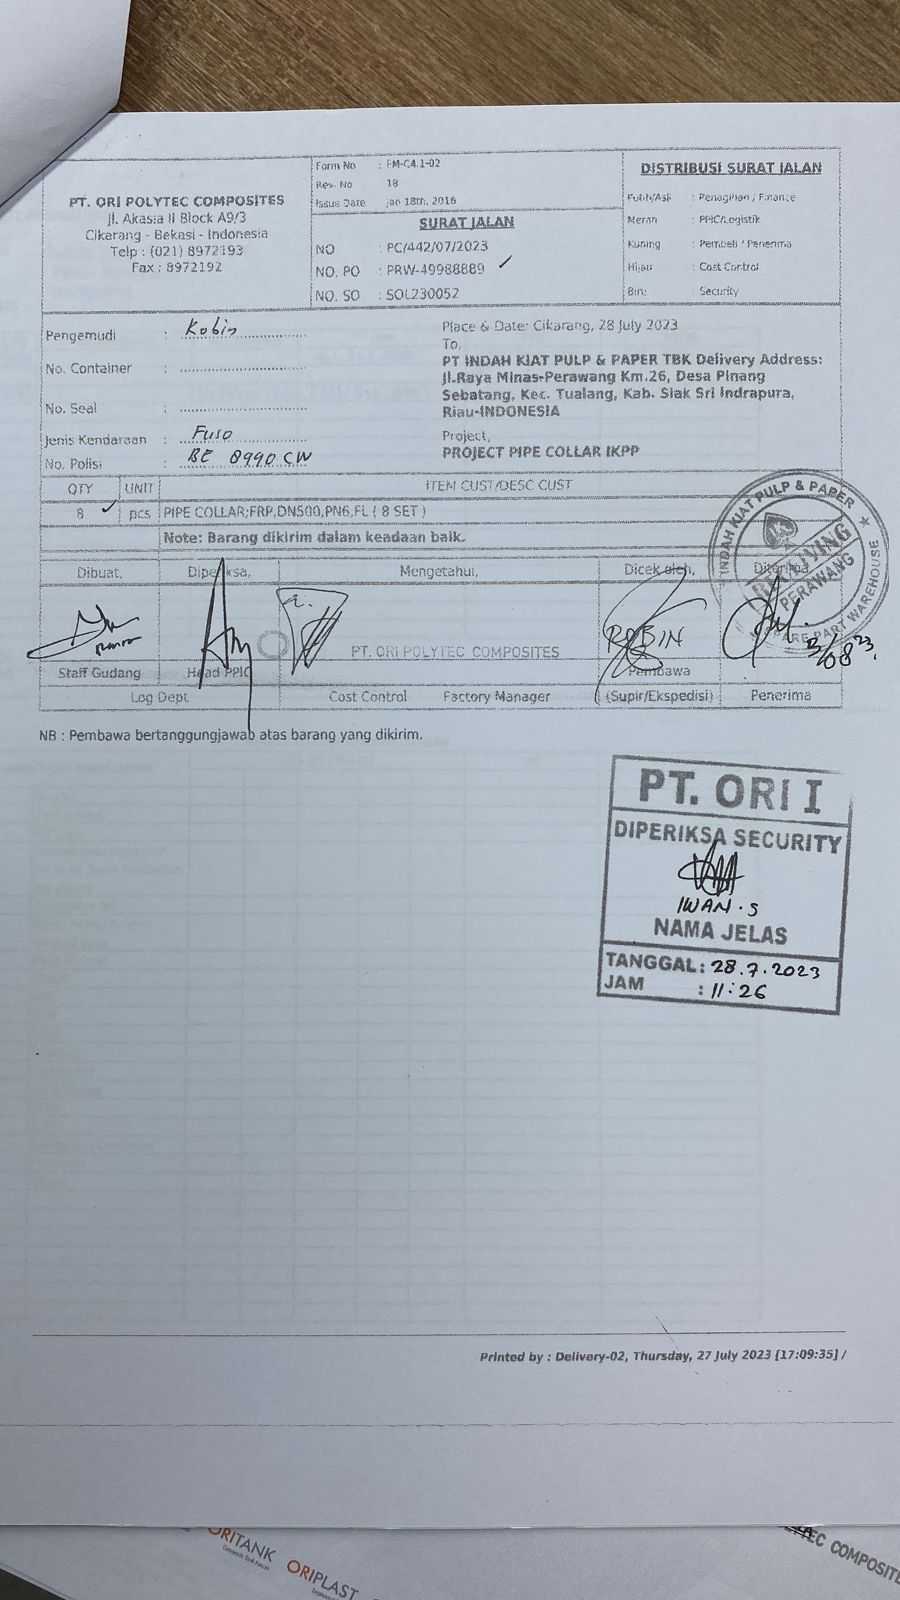 PT. ORI POLYTEC COMPOSITES
Jl. Akasia II Block A9/3
Cikarang - Bekasi - Indonesia
Telp : (021) 8972193
Fax : 8972192
Form No : FM-C4.1-02
Rev. No 18
Issue Date Jan 18th, 2016
SURAT JALAN
NO : PC/442/07/2023
NO. PO : PRW-49988889 ✓
NO. SO : SOL230052
DISTRIBUSI SURAT JALAN
Putih/Asli : Penagihan / Finance
Merah : PPIC/Logistik
Kuning : Pembeli / Penerima
Hijau : Cost Control
Biru : Security
Pengemudi : Robin
No. Container :
No. Seal :
Jenis Kendaraan : Fuso
No. Polisi : BE 8990 CW
Place & Date: Cikarang, 28 July 2023
To,
PT INDAH KIAT PULP & PAPER TBK Delivery Address:
Jl.Raya Minas-Perawang Km.26, Desa Pinang
Sebatang, Kec. Tualang, Kab. Siak Sri Indrapura,
Riau-INDONESIA
Project,
PROJECT PIPE COLLAR IKPP
QTY UNIT ITEM CUST/DESC CUST
8 ✓ pcs PIPE COLLAR;FRP,DN500,PN6,FL ( 8 SET )
Note: Barang dikirim dalam keadaan baik.
INDAH KIAT PULP & PAPER
RECEIVING
PERAWANG
SPARE PART WAREHOUSE
Dibuat, Diperiksa, Mengetahui, Dicek oleh, Diterima
ROBIN
PT. ORI POLYTEC COMPOSITES
Staff Gudang Head PPIC Pembawa
Log Dept. Cost Control Factory Manager (Supir/Ekspedisi) Penerima
NB : Pembawa bertanggungjawab atas barang yang dikirim.
PT. ORI I
DIPERIKSA SECURITY
IWAN.S
NAMA JELAS
TANGGAL : 28.7.2023
JAM : 11:26
Printed by : Delivery-02, Thursday, 27 July 2023 [17:09:35] /
ORITANK
ORIPLAST
TEC COMPOSITE